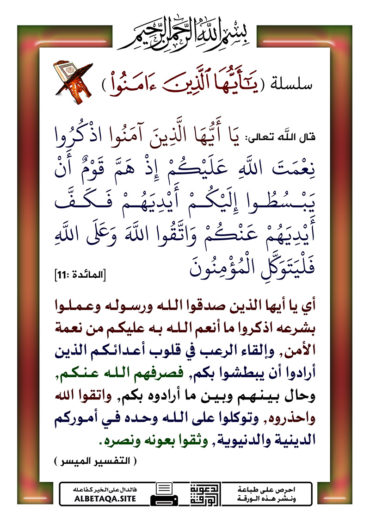 بسم الله الرحمن الرحيم
سلسلة ( يَـٰٓأَيُّهَا ٱلَّذِينَ ءَامَنُوا۟ )
قال الله تعالى: يَا أَيُّهَا الَّذِينَ آمَنُوا اذْكُرُوا
نِعْمَتَ اللَّهِ عَلَيْكُمْ إِذْ هَمَّ قَوْمٌ أَنْ
يَبْسُطُوا إِلَيْكُمْ أَيْدِيَهُمْ فَكَفَّ
أَيْدِيَهُمْ عَنْكُمْ وَاتَّقُوا اللَّهَ وَعَلَى اللَّهِ
فَلْيَتَوَكَّلِ الْمُؤْمِنُونَ [المائدة :11]
أي يا أيها الذين صدقوا الله ورسوله وعملوا
بشرعه اذكروا ما أنعم الله به عليكم من نعمة
الأمن, وإلقاء الرعب في قلوب أعدائكم الذين
أرادوا أن يبطشوا بكم, فصرفهم الله عنكم,
وحال بينهم وبين ما أرادوه بكم, واتقوا الله
واحذروه, وتوكلوا على الله وحده في أموركم
الدينية والدنيوية, وثقوا بعونه ونصره.
( التفسير الميسر )
احرص على طباعة
ونشر هذه الورقة
فالدال على الخير كفاعله
ALBETAQA.SITE